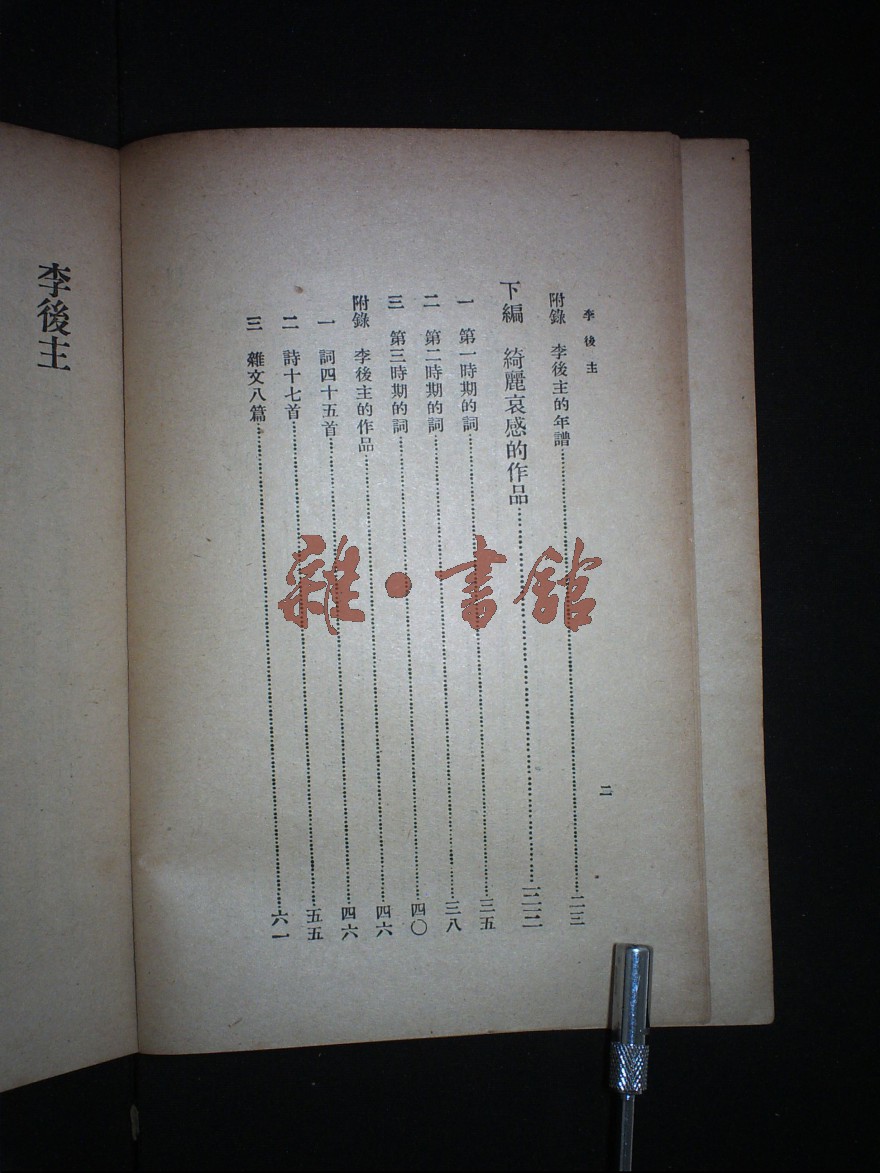 李後主
二
附錄 李後主的年譜 二三
下編 綺麗哀感的作品 三二
一 第一時期的詞 三五
二 第二時期的詞 三八
三 第三時期的詞 四〇
附錄 李後主的作品 四六
一 詞四十五首 四六
二 詩十七首 五五
三 雜文八篇 六一
李後主
雜·書館